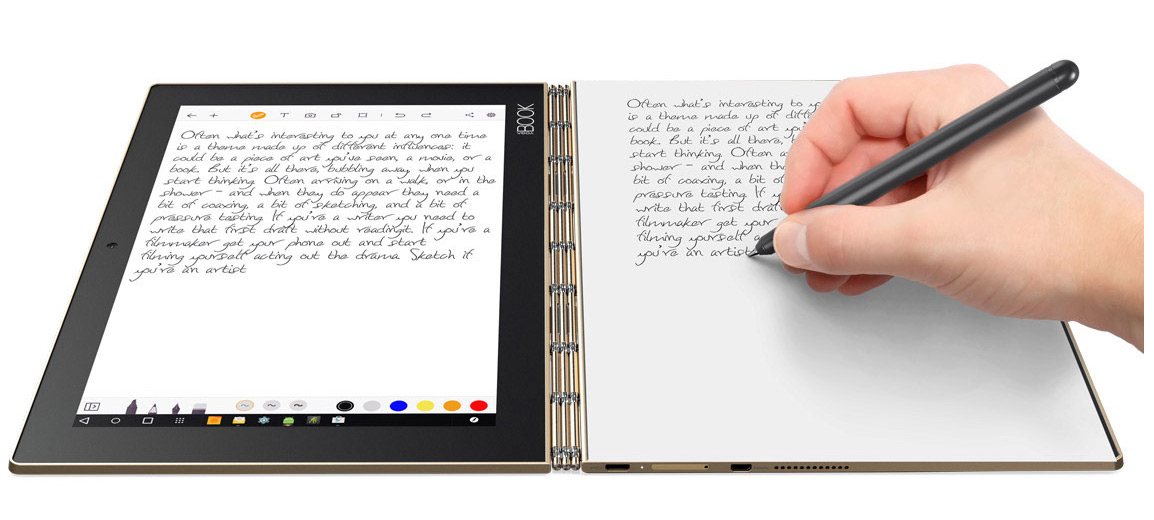 YOGA BOOK
T
Often what's interesting to you at any one time
is a theme made up of different influences: it
could be a piece of art you've seen, a movie, or a
book. But it's all there, bubbling away when you
start thinking. Often arriving on a walk, or in the
shower - and when they do appear they need a
bit of coaxing, a bit of sketching, and a bit of
pressure testing. If you're a writer you need to
write that first draft without readingit. If you're a
filmmaker get your phone out and start
filming yourself acting out the drama. Sketch if
you're an artist
Often what's interesting to
is a theme made up of
could be a piece of art
book. But it's all there,
start thinking. Often
shower - and when
bit of coaxing, a bit of
pressure testing. If
write that first draft
filmmaker get your
filming yourself
you're an artist